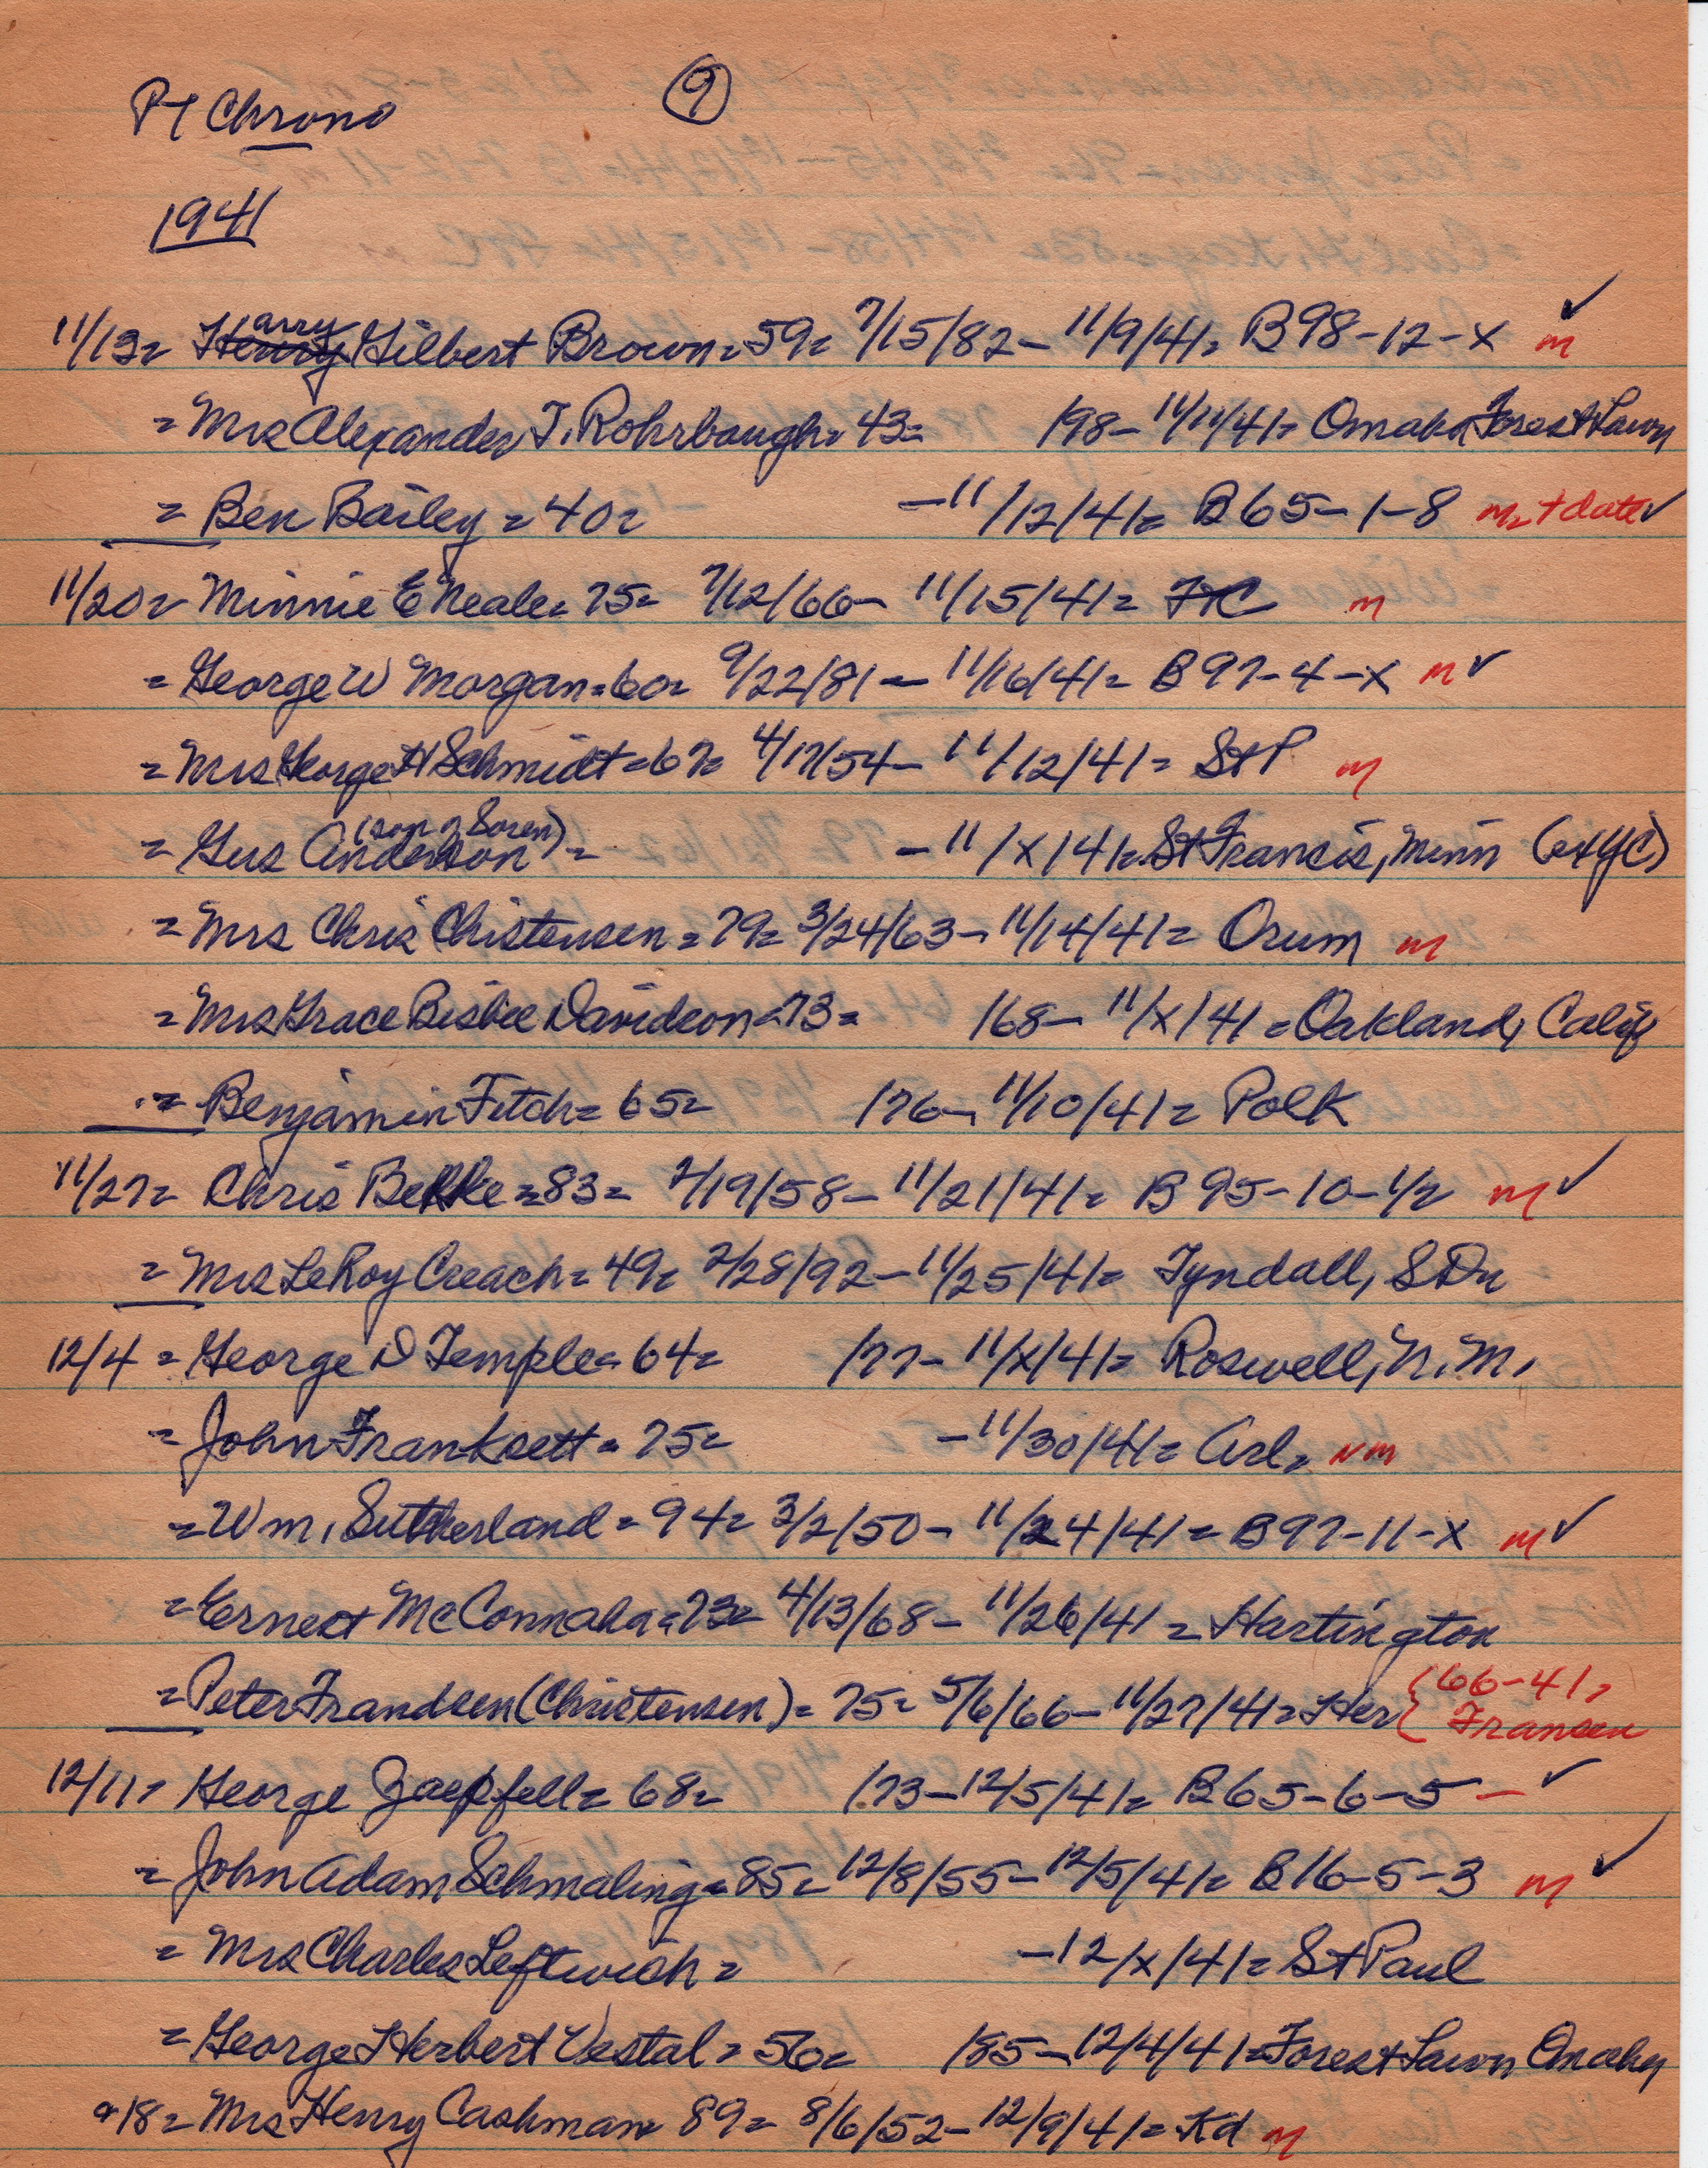 PT Chrono
9
1941
11/13= Harry Gilbert Brown= 59= 7/15/82- 11/9/41= B98-12-X m ✓
= Mrs Alexander T. Rohrbough= 43= /98- 11/11/41= Omaha Forest Lawn
= Ben Bailey = 40= -11/12/41= B65-1-8 m=+date ✓
11/20= Minnie E Neale= 75= 7/12/66- 11/15/41= m
= George W Morgan= 60= 9/22/81- 11/16/41= B97-4-X m ✓
= Mrs George H Schmidt= 67= 4/17/54- 11/12/41= StP m
= Gus Anderson (son of Soren) = -11/X/41= St Francis, Minn (exYC)
= Mrs Chris Christensen= 79= 3/24/63- 11/14/41= Orum m
= Mrs Grace Bisbee Davidson= 73= /68- 11/X/41= Oakland, Calif
= Benjamin Fitch= 65= /76- 11/10/41= Polk
11/27= Chris Bekke= 83= 2/19/58- 11/21/41= B95-10-1/2 m ✓
= Mrs LeRoy Creach= 49= 2/28/92- 11/25/41= Tyndall, SDu
12/4 = George D Temple= 64= /77- 11/X/41= Roswell, N.M.
= John Frank = 75= -11/30/41= Arl= NM
= Wm. Sutherland= 94= 3/2/50- 11/24/41= B97-11-X m ✓
= Ernest McConnaha= 73= 4/13/68- 11/26/41= Hartington
= Peter Frandsen (Christensen)= 75= 5/6/66- 11/27/41= Her { 66-41,
Fransen
12/11= George Zaepfell= 68= /73- 12/5/41= B65-6-5 - ✓
= John Adam Schmaling= 85= 12/8/55- 12/5/41= B16-5-3 m ✓
= Mrs Charles Leftwich= -12/X/41= St Paul
= George Herbert Vestal= 56= /85- 12/4/41= Forest Lawn Omaha
18= Mrs Henry Cashman= 89= 8/6/52- 12/9/41= Kd m